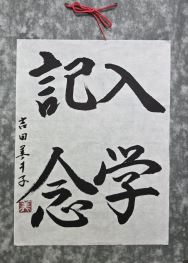 入学
記念
吉田美千子